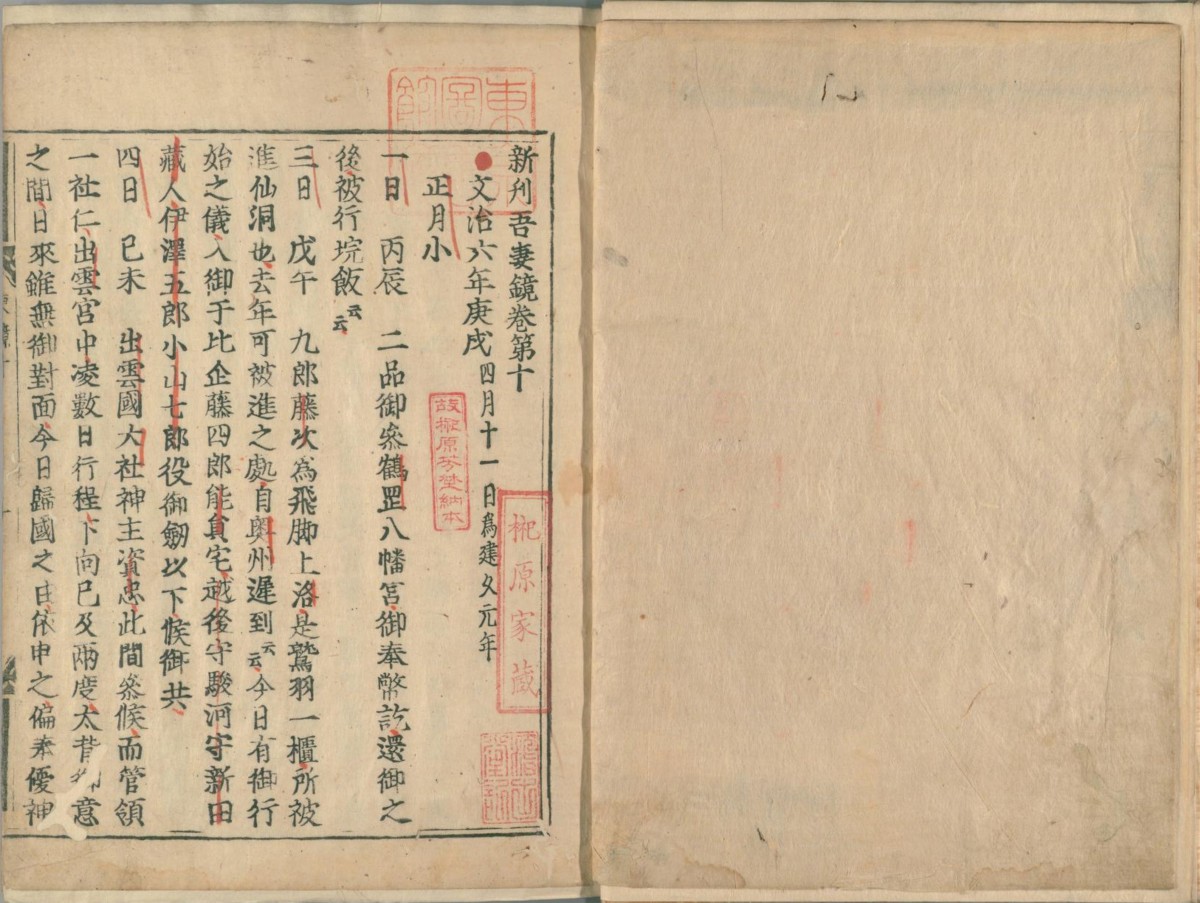 新刋吾妻鏡卷第十
文治六年庚戌 四月十一日爲建久元年
正月小
一日 丙辰 二品御參鶴罡八幡宮御奉幣訖還御之
後被行垸飯云云
三日 戊午 九郎藤次爲飛脚上洛是鷲羽一櫃所被
進仙洞也去年可被進之處自奥州遲到云云今日有御行
始之儀入御于比企藤四郎能員宅越後守駿河守新田
藏人伊澤五郎小山七郎役御劔以下候御共
四日 己未 出雲國大社神主資忠此間參候而管領
一社仁出雲宮中凌數日行程下向已及兩度太背 意
之間日來雖無御對面今日歸國之由依申之偏奉優神
故榊原芳埜納本
榊原家藏